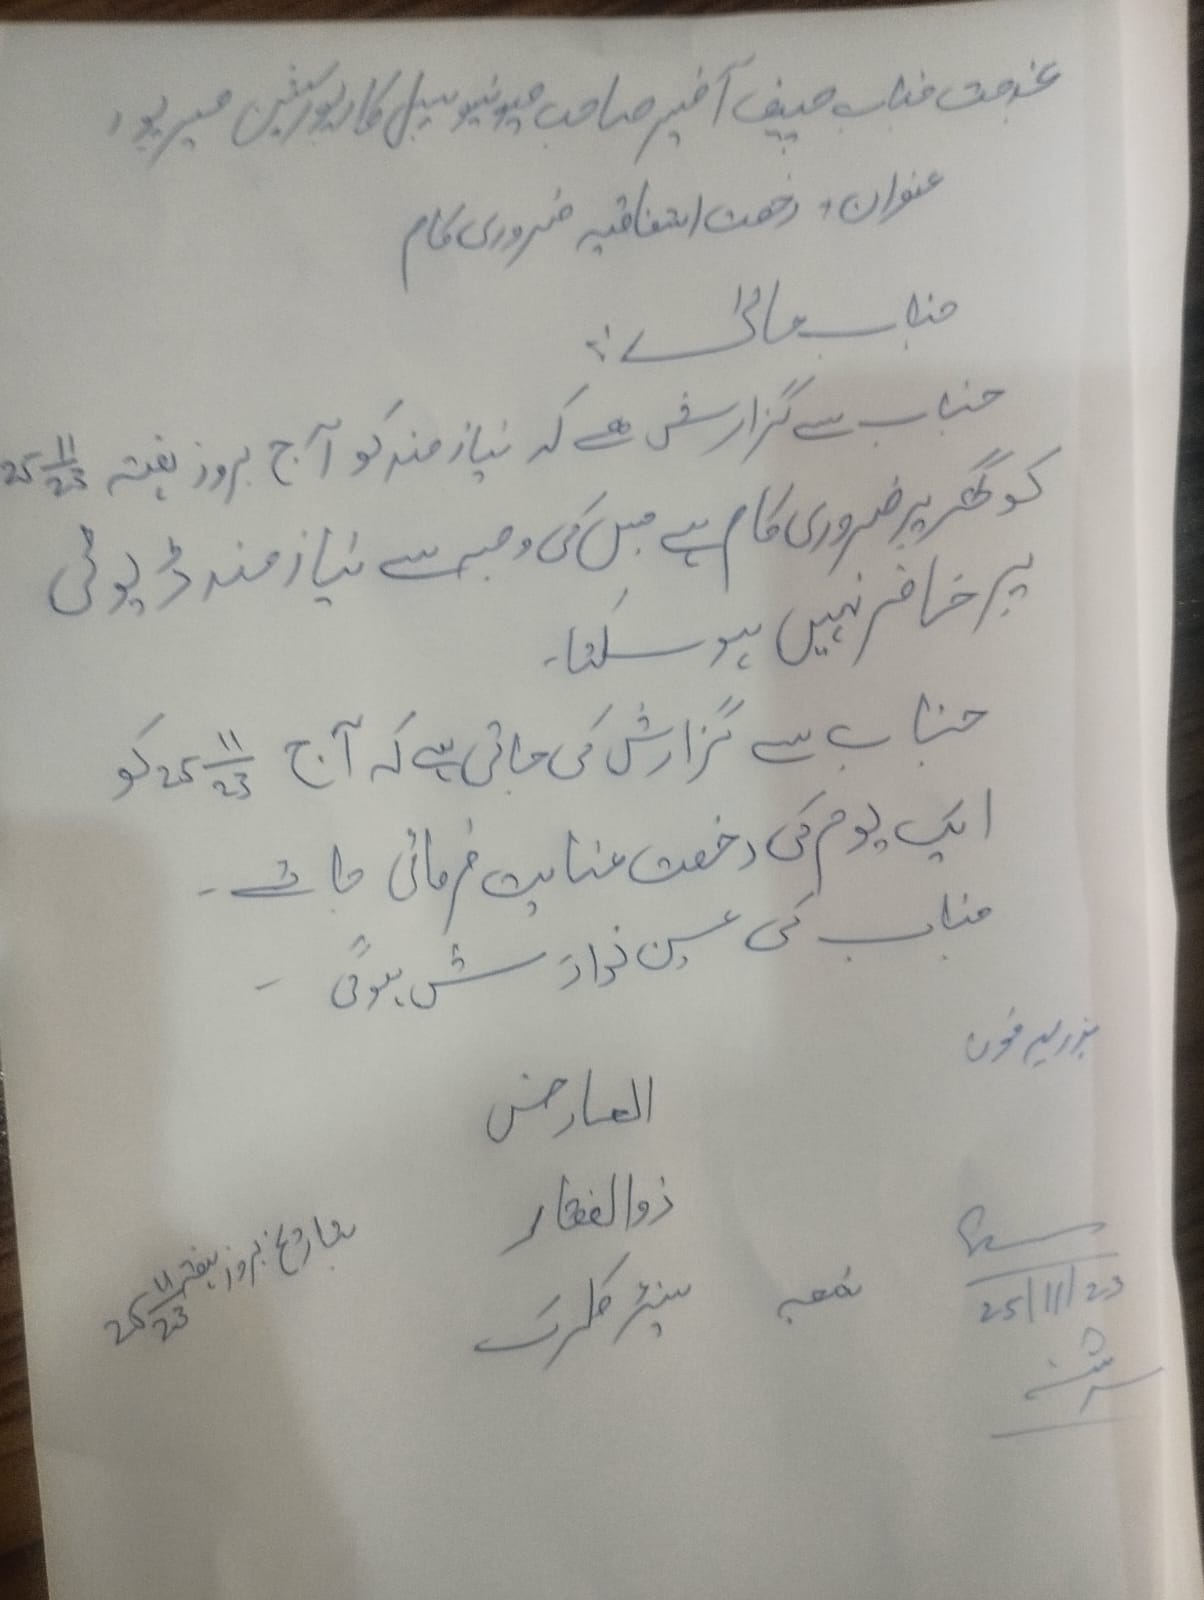 بخدمت جناب چیف آفیسر صاحب میونسپل کارپوریشن میرپور
عنوان: رخصت اتفاقیہ ضروری کام
جناب عالیٰ!
جناب سے گزارش ہے کہ نیازمند کو آج بروز ہفتہ 25 11/23
کو گھر پر ضروری کام ہے جس کی وجہ سے نیازمند ڈیوٹی
پر حاضر نہیں ہو سکتا۔
جناب سے گزارش کی جاتی ہے کہ آج 25 11/23 کو
ایک یوم کی رخصت عنایت فرمائی جائے۔
جناب کی عین نوازش ہوگی۔
بذریعہ فون
العارض
ذوالفقار
سینئر کلرک
شعبہ
بتاریخ بروز ہفتہ 25 11/23
25/11/23